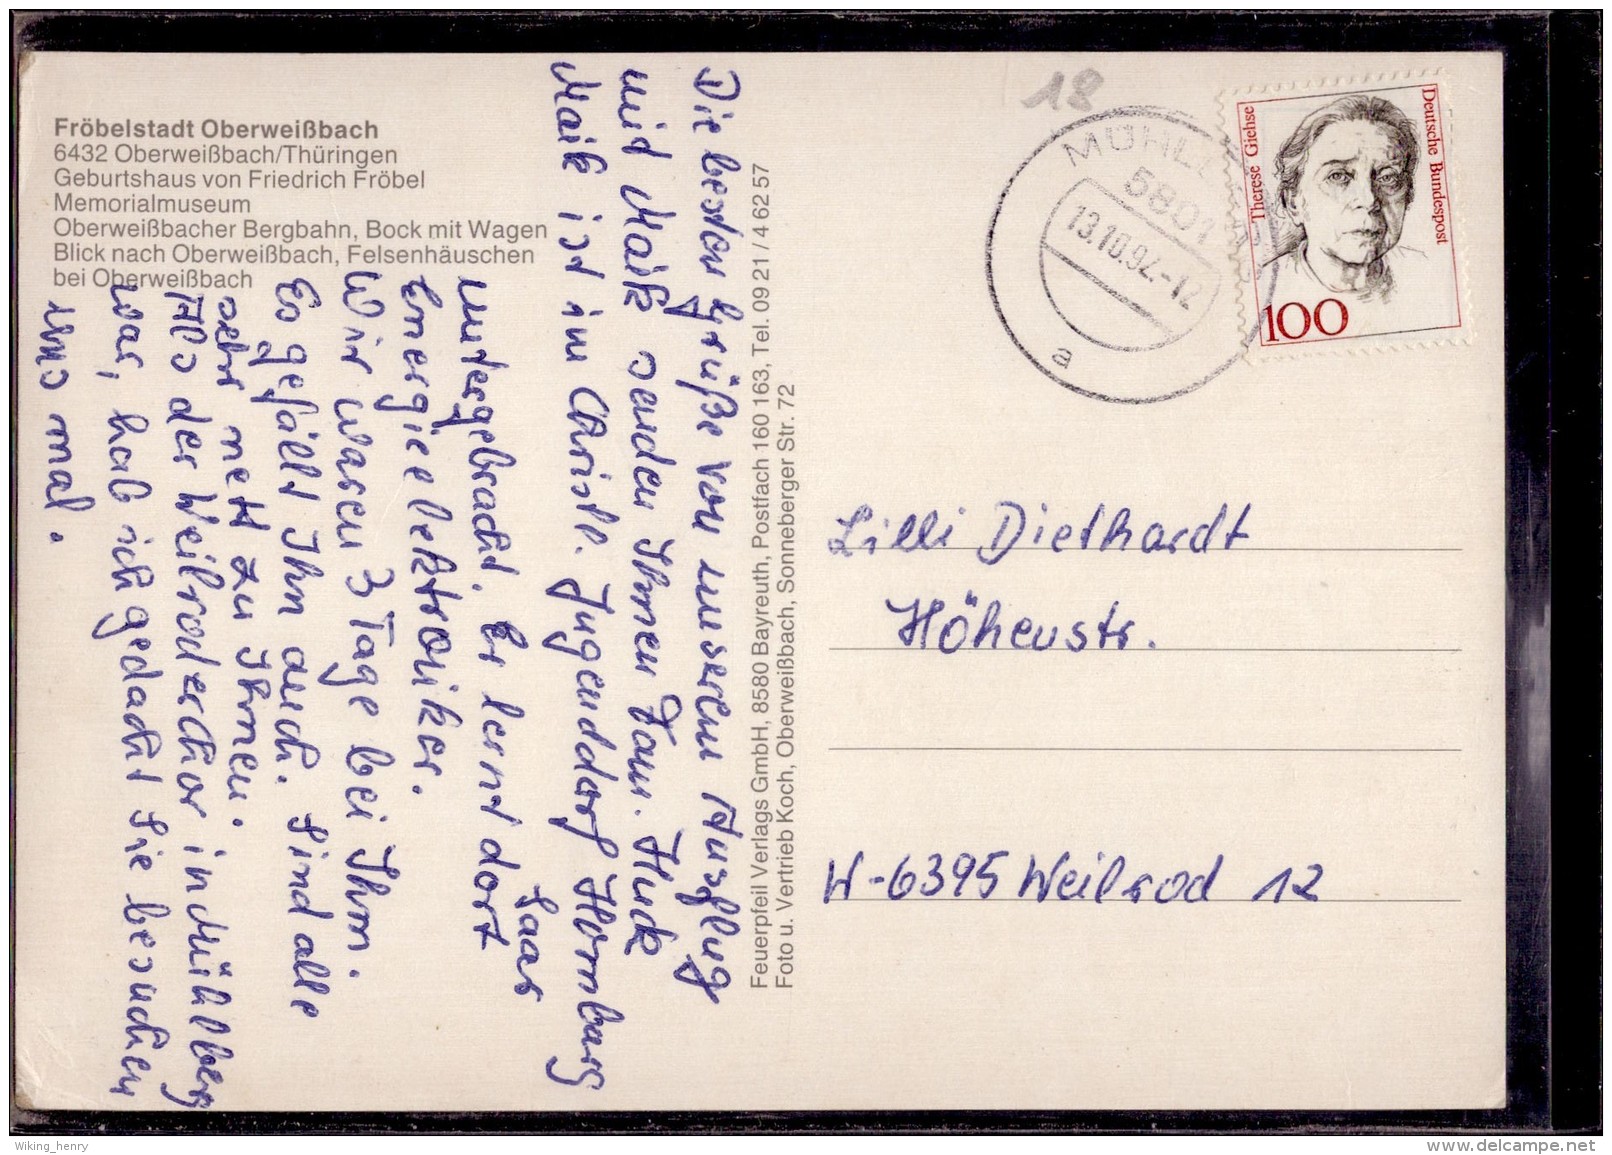 Fröbelstadt Oberweißbach
6432 Oberweißbach/Thüringen
Geburtshaus von Friedrich Fröbel
Memorialmuseum
Oberweißbacher Bergbahn, Bock mit Wagen
Blick nach Oberweißbach, Felsenhäuschen
bei Oberweißbach
Die besten Grüße von unserem Ausflug
mit Maik senden Ihnen Fam. Huck
Maik ist im Christl. Jugenddorf Homburg
Saar
untergebracht. Er lernt dort
Energieelektroniker.
Wir waren 3 Tage bei Ihm.
Es gefällt Ihn auch. Sind alle
sehr nett zu Ihnen.
Als der Weilroder Chor in Mühlberg
war, hab ich gedacht Sie besuchen
uns mal.
Feuerpfeil Verlags GmbH, 8580 Bayreuth, Postfach 160 163, Tel. 09 21 / 4 62 57
Foto u. Vertrieb Koch, Oberweißbach, Sonneberger Str. 72
18
5801
13.10.92.-12
a
Therese Giehse
Deutsche Bundespost
100
Lilli Diethardt
Höhenstr.
W-6395 Weilrod 12
Wiking_henry
www.delcampe.net